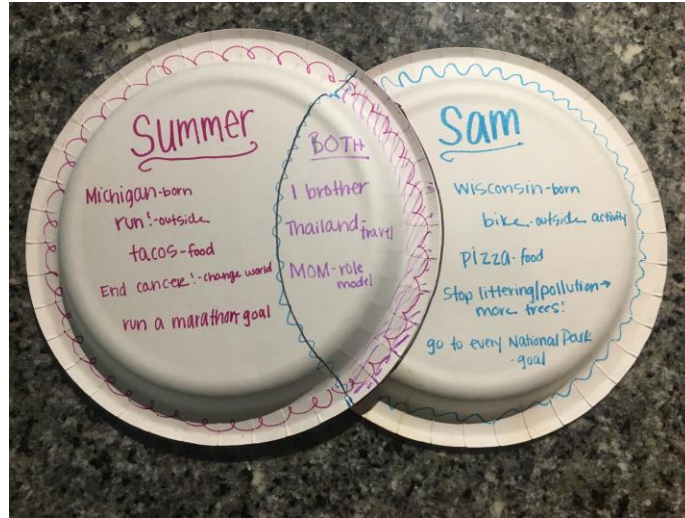 Summer
Michigan-born
run!-outside
tacos-food
End cancer!-change world
run a marathon-goal
BOTH
1 brother
Thailand-travel
MOM-role
model
Sam
Wisconsin-born
bike-outside activity
pizza-food
Stop littering/pollution→
more trees!
go to every National Park
-goal